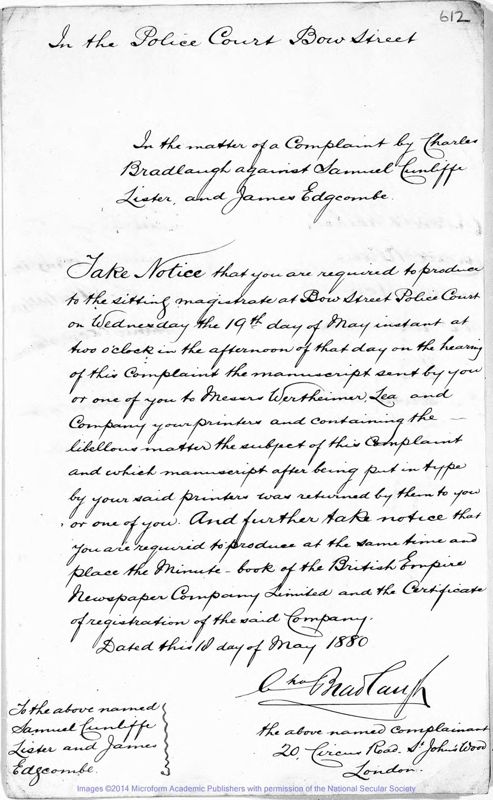 612
In the Police Court Bow Street
In the matter of a Complaint by Charles
Bradlaugh against Samuel Cunliffe
Lister, and James Edgcombe.
Take Notice that you are required to produce
to the sitting magistrate at Bow Street Police Court
on Wednesday the 19th day of May instant at
two o'clock in the afternoon of that day on the hearing
of this Complaint the manuscript sent by you
or one of you to Messrs Wertheimer, Lea and
Company your printers and containing the
libellous matter the subject of this Complaint
and which manuscript after being put in type
by your said printers was returned by them to you
or one of you. And further take notice that
you are required to produce at the same time and
place the Minute-book of the British Empire
Newspaper Company Limited and the Certificate
of registration of the said Company.
Dated this 18 day of May 1880
Chas Bradlaugh
the above named complainant
20, Circus Road. St John's Wood
London.
To the above named
Samuel Cunliffe
Lister and James
Edgcombe.
Images ©2014 Microform Academic Publishers with permission of the National Secular Society